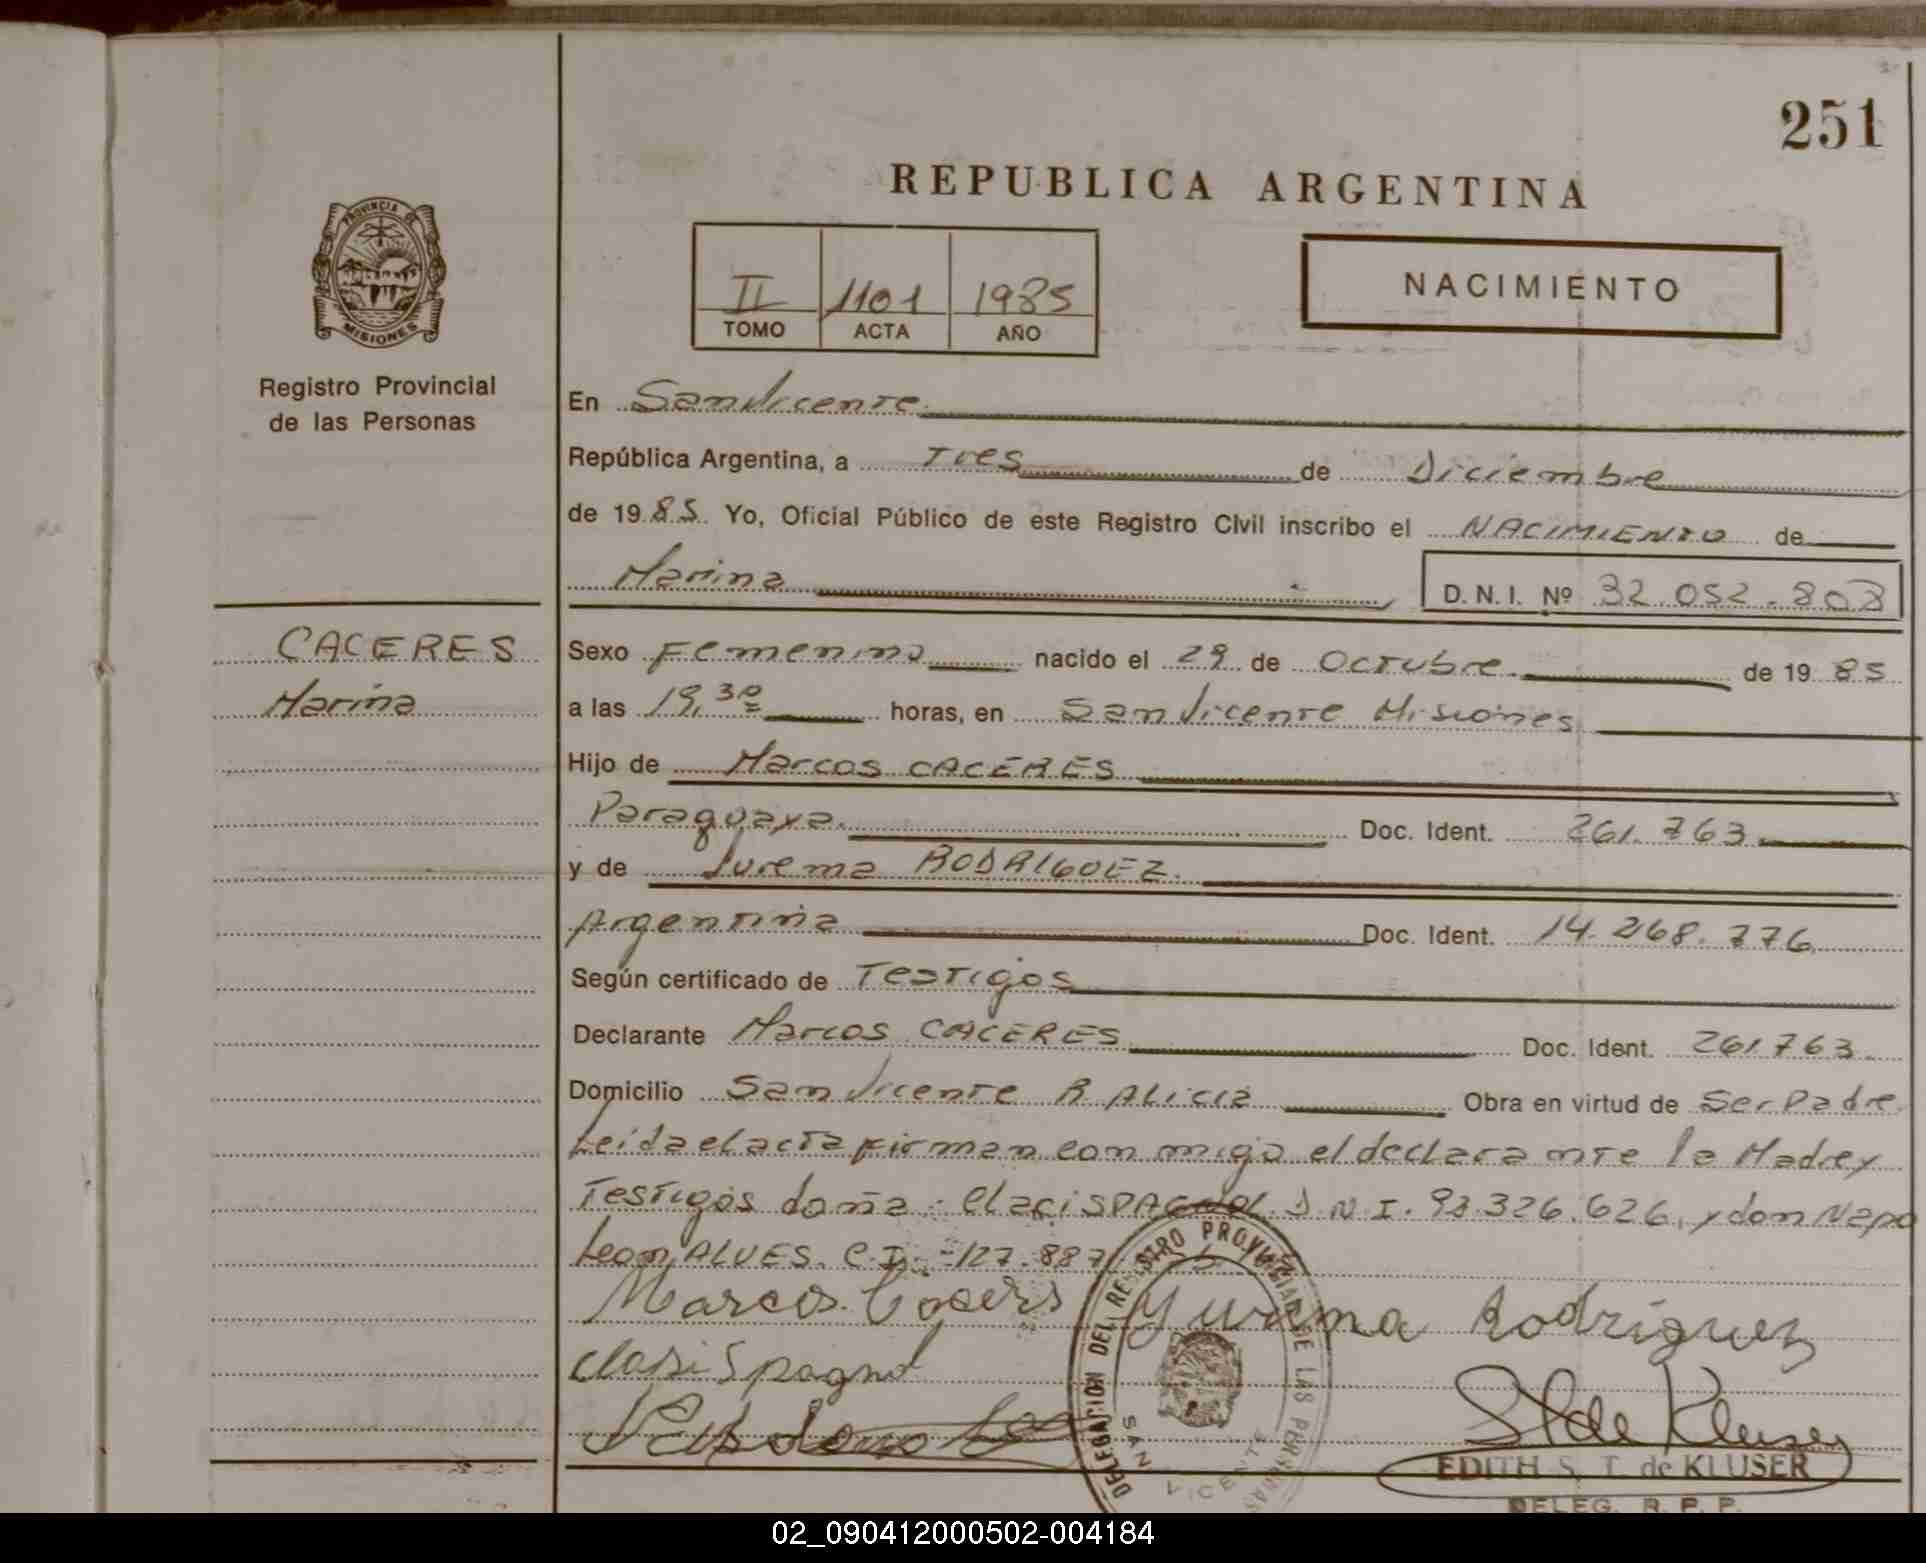 251
REPUBLICA ARGENTINA
II 1101 1985
TOMO ACTA AÑO
NACIMIENTO
PROVINCIA DE
MISIONES
Registro Provincial
de las Personas
En San Vicente
República Argentina, a Tres de Diciembre
de 1985. Yo, Oficial Público de este Registro Civil inscribo el NACIMIENTO de
Marina D. N. I. Nº 32.052.808
CACERES
Marina
Sexo Femenino nacido el 29 de Octubre de 1985
a las 19,30 horas, en San Vicente Misiones
Hijo de Marcos CACERES
Paraguaya. Doc. Ident. 261.763
y de Jurema RODRIGUEZ.
Argentina Doc. Ident. 14.268.776
Según certificado de Testigos
Declarante Marcos CACERES Doc. Ident. 261763
Domicilio San Vicente R Alicia Obra en virtud de Ser Padre
Leida el acta firman con migo el declarante la Madre y
Testigos doña: Claci SPAGNOL D.N.I. 93.326.626, y don Napo
Leon ALVES. C.I. 127.887
Marcos Caceres Yurema Rodriguez
Clasi Spagnol
DELEGACION DEL REGISTRO PROVINCIAL DE LAS PERSONAS
SAN VICENTE
S T de Kluser
EDITH S. T. de KLUSER
DELEG. R. P. P.
02_090412000502-004184